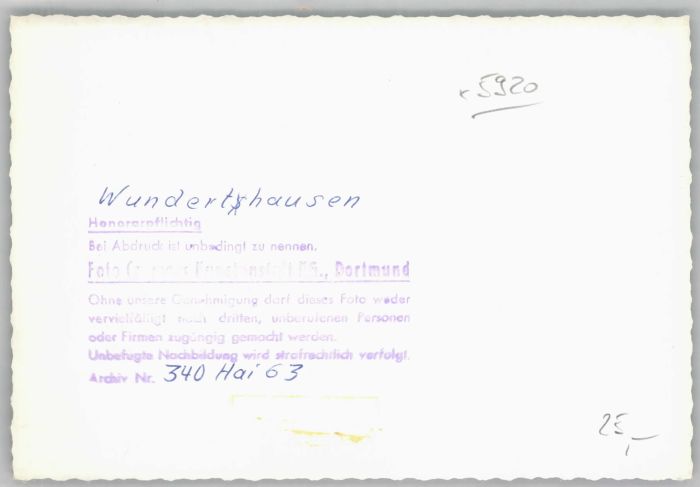 x 5920
Wundertshausen
Honorarpflichtig
Bei Abdruck ist unbedingt zu nennen.
Foto Kunstanstalt KG., Dortmund
Ohne unsere Genehmigung darf dieses Foto weder
vervielfältigt noch dritten, unberufenen Personen
oder Firmen zugängig gemacht werden.
Unbefugte Nachbildung wird strafrechtlich verfolgt.
Archiv Nr. 340 Hai 63
25,-